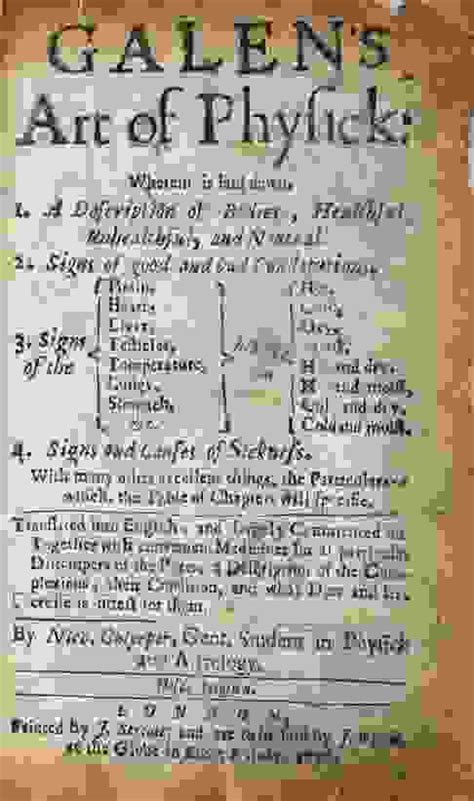 GALEN'S
Art of Phyſick:
Wherein is laid down,
1. A Deſcription of Bodies, Healthful,
Unhealthful, and Neutral.
2. Signs of good and bad Conſtitutions.
3. Signs
of the
Brain,
Heart,
Liver,
Teſticles,
Temperature,
Lungs,
Stomach,
&c.
being
Hot,
Cold,
Dry,
Hot and dry.
Hot and moiſt,
Cold and dry.
Cold and moiſt.
4. Signs and Cauſes of Sickneſs.
With many other excellent things, the Particulars of
which, the Table of Chapters will ſpecifie.
Tranſlated into Engliſh, and largely Commented on
Together with convenient Medicines for all particular
Diſtempers of the Parts, a Deſcription of the Com-
plexions, their Conditions, and what Diet and Ex-
erciſe is fitteſt for them.
By Nich. Culpeper, Gent. Student in Phyſick
and Aſtrology.
LONDON,
Printed by J. and are to be ſold by J.
at the Globe in